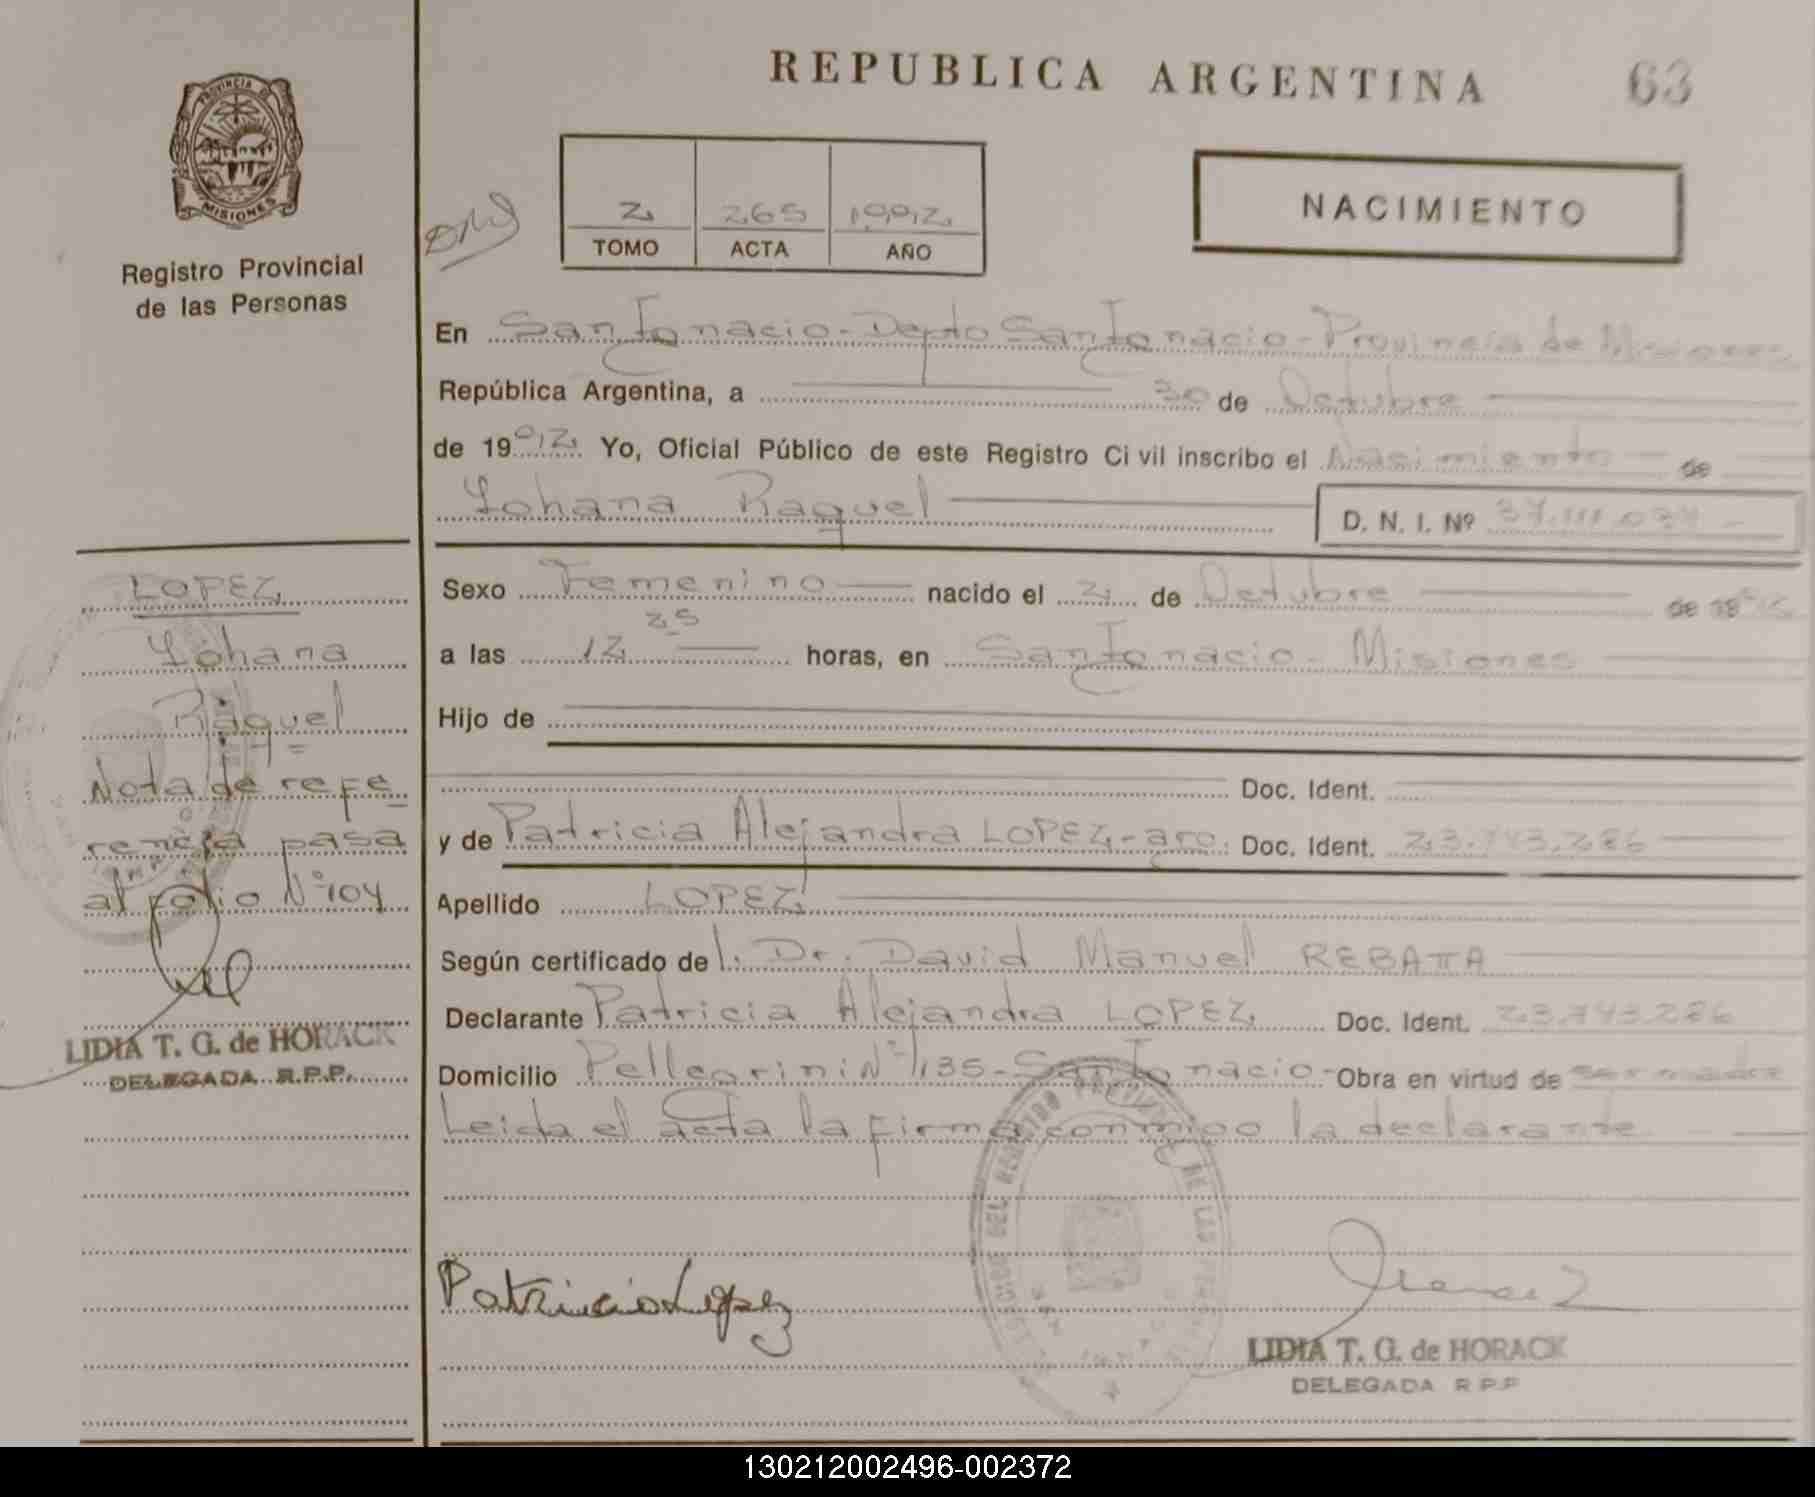 REPUBLICA ARGENTINA
63
PROVINCIA DE
MISIONES
Registro Provincial
de las Personas
2 265 1992
TOMO ACTA AÑO
NACIMIENTO
En San Ignacio - Depto San Ignacio - Provincia de Misiones
República Argentina, a 30 de Octubre
de 1992 Yo, Oficial Público de este Registro Civil inscribo el Nacimiento de
Yohana Raquel D. N. I. Nº
Sexo Femenino nacido el 2 de Octubre de 1992
a las 12 25 horas, en San Ignacio - Misiones
Hijo de
Doc. Ident.
y de Patricia Alejandra LOPEZ - arg. Doc. Ident. 23.743.286
Apellido LOPEZ
Según certificado del Dr. David Manuel REBATTA
Declarante Patricia Alejandra LOPEZ Doc. Ident. 23.743.286
Domicilio Pellegrini Nº 1135 - San Ignacio - Obra en virtud de ser madre
Leida el acta la firma conmigo la declarante
Patricia Lopez
LIDIA T. G. de HORACK
DELEGADA R.P.P.
LOPEZ
Yohana
Raquel
Nota de refe
rencia pasa
al folio Nº 104
LIDIA T. G. de HORACK
DELEGADA R.P.P.
130212002496-002372